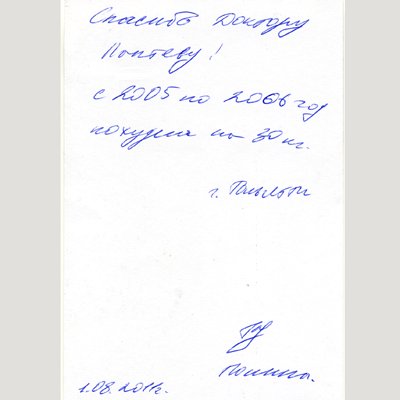 Спасибо Доктору
Лаптеву!
с 2005 по 2006 год
похудела на 30 кг.
г. Тольятти
1.08.2011г.